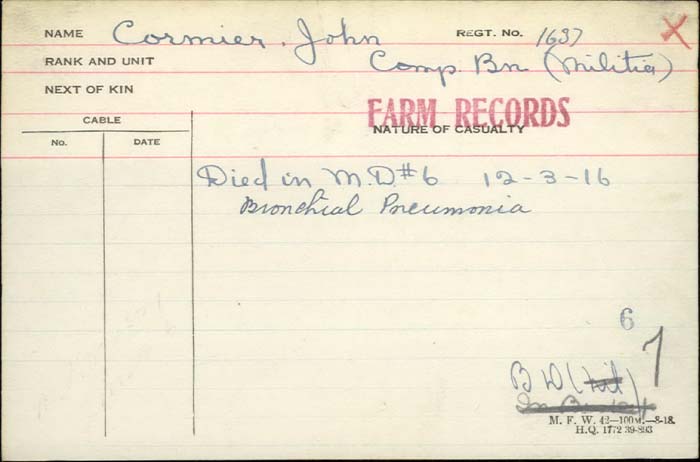 NAME Cormier, John REGT. NO. 1637
RANK AND UNIT Comp. Bn (Militia)
NEXT OF KIN
FARM RECORDS
CABLE NATURE OF CASUALTY
No. DATE
Died in M.D.#6 12-3-16
Bronchial Pneumonia
6
7
B D
M. F. W. 42—100M.—8-18.
H.Q. 1772 39-893